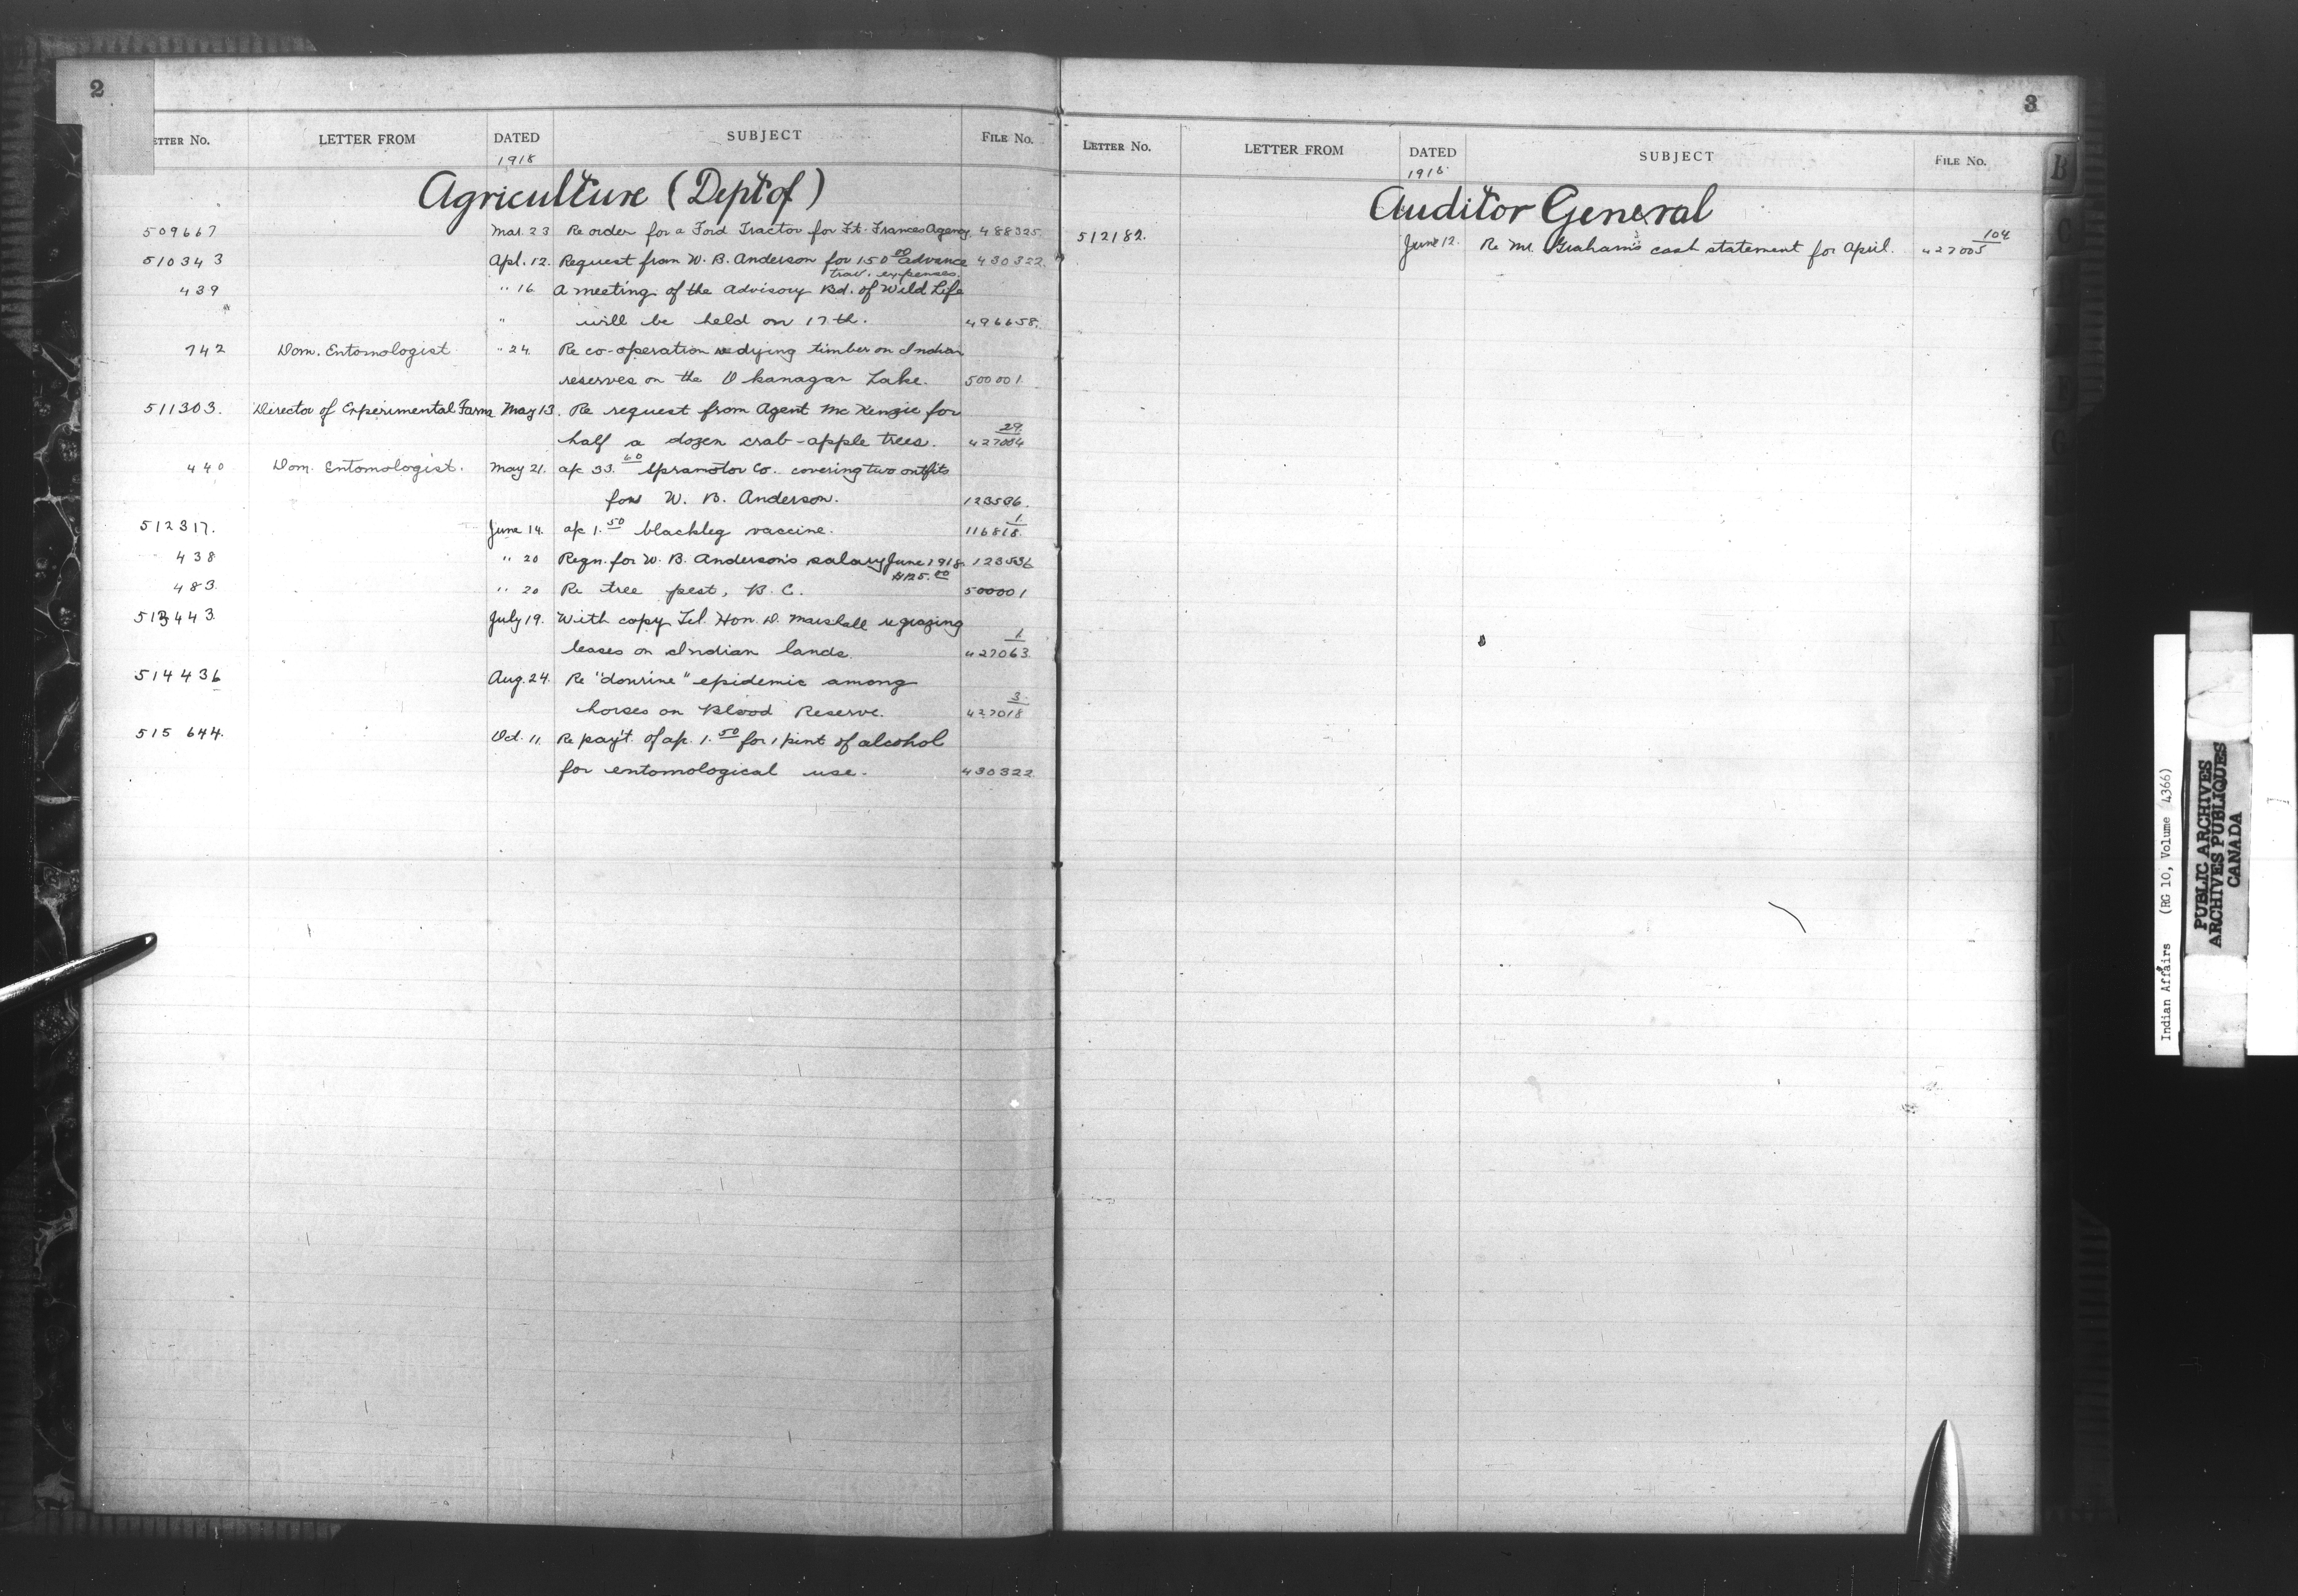 2
ETTER No. LETTER FROM DATED SUBJECT FILE No.
1918
Agriculture (Dept of)
509667 Mar. 23 Re order for a Ford Tractor for Ft. Frances Agency. 488325.
510343 Apl. 12. Request from W. B. Anderson for 150 00 advance 430322.
trav. expenses.
439 " 16 A meeting of the Advisory Bd. of Wild Life
" will be held on 17th. 496658.
742 Dom. Entomologist " 24 Re co-operation re dying timber on Indian
reserves on the Okanagan Lake. 500001.
511303. Director of Experimental Farms May 13. Re request from Agent McKenzie for
half a dozen crab-apple trees. 427004 29
440 Dom. Entomologist. May 21. a/c 33.60 Spramotor Co. covering two outfits
for W. B. Anderson. 123536.
512317. June 14. a/c 1.50 blackleg vaccine. 116818. 1
438 " 20 Reqn. for W. B. Anderson's salary June 1918. 123536
$125.00
483. " 20 Re tree pest, B. C. 500001
513443 July 19. With copy Tel. Hon. D. Marshall re grazing
leases on Indian lands. 427063. 1
514436 Aug. 24. Re "dourine" epidemic among
horses on Blood Reserve. 427018 3
515644. Oct. 11. Re pay't. of a/c. 1.50 for 1 pint of alcohol
for entomological use. 430322
3
LETTER No. LETTER FROM DATED SUBJECT FILE No.
1918
Auditor General
512182. June 12. Re Mr. Graham's cash statement for April. 427005 104
B
C
E
G
K
Indian Affairs (RG 10, Volume 4366)
PUBLIC ARCHIVES
ARCHIVES PUBLIQUES
CANADA